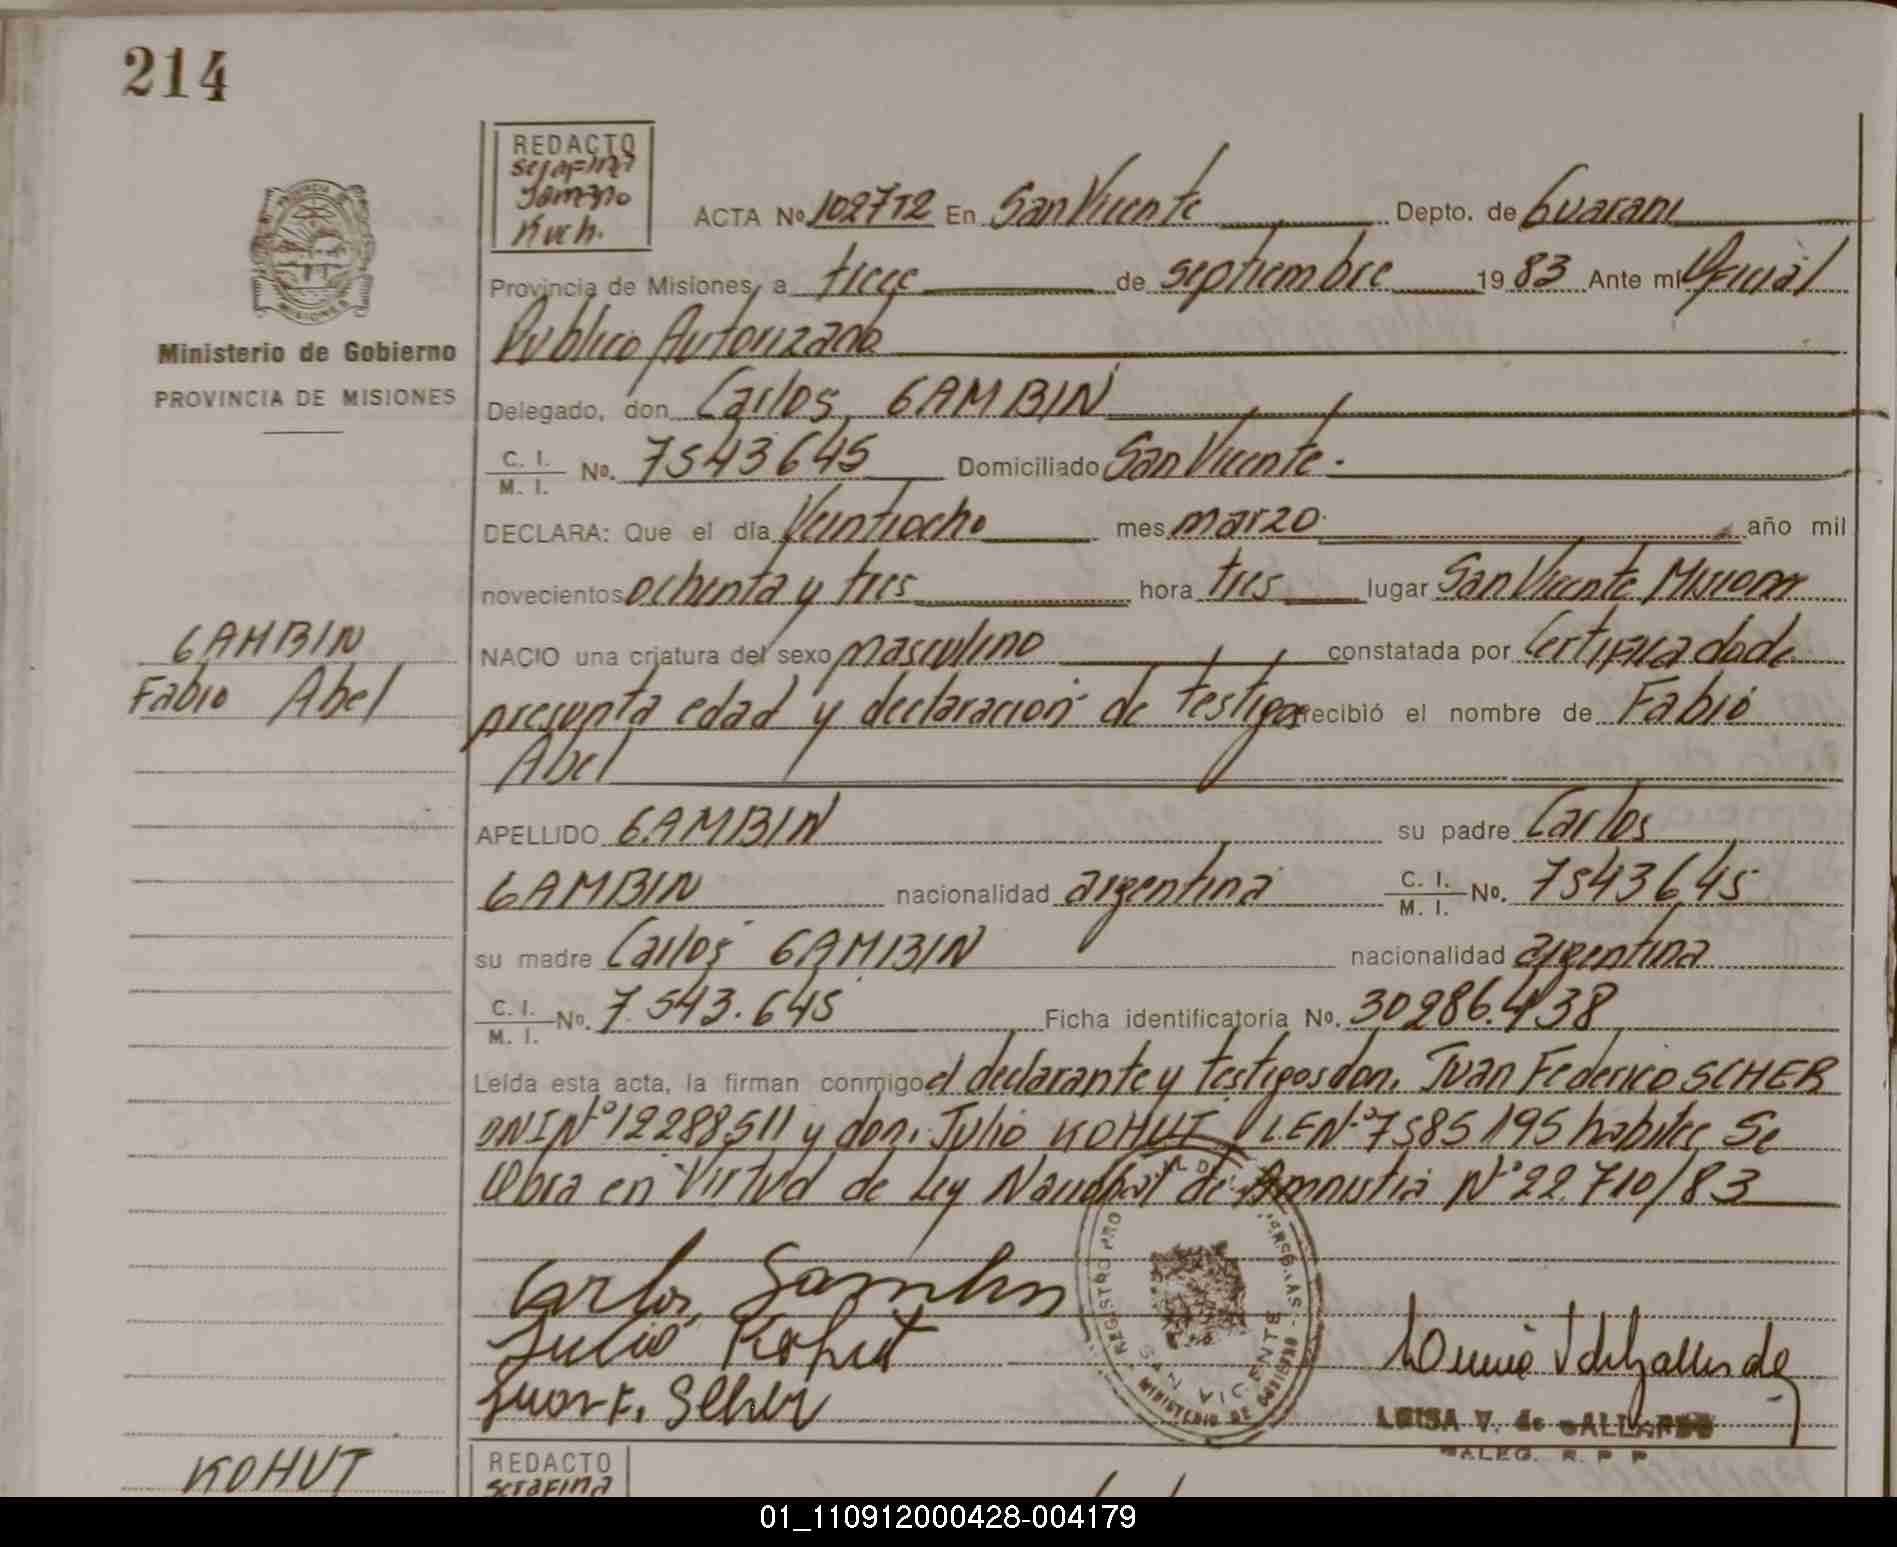 214
REDACTO
Serafina
Kuch.
ACTA Nº 102712 En San Vicente Depto. de Guarani
Provincia de Misiones, a trece de septiembre 1983 Ante mi Oficial
Publico Autorizado
Ministerio de Gobierno
PROVINCIA DE MISIONES
Delegado, don Carlos GAMBIN
C. I.
M. I. Nº. 7543645 Domiciliado San Vicente.
DECLARA: Que el día Veintiocho mes marzo año mil
novecientos ochenta y tres hora tres lugar San Vicente Misiones
GAMBIN
Fabio Abel
NACIO una criatura del sexo masculino constatada por Certificado de
presunta edad y declaracion de testigos recibió el nombre de Fabio
Abel
APELLIDO GAMBIN su padre Carlos
GAMBIN nacionalidad argentina C. I. M. I. Nº. 7543645
su madre Carlos GAMBIN nacionalidad argentina
C. I.
M. I. Nº. 7.543.645 Ficha identificatoria Nº. 30286.438
Leída esta acta, la firman conmigo el declarante y testigos don. Juan Federico SCHER
DNI Nº 12288511 y don. Julio KOHUT LE Nº 7585195 habiles Se
Obra en Virtud de Ley Nacional de Amnistia Nº 22.710/83
Carlos Gambin
Julio Kohut
Juan F. Scher
REGISTRO SAN VICENTE
MINISTERIO DE GOBIERNO
LUISA V. de GALLARDO
KOHUT
REDACTO
Serafina
01_110912000428-004179